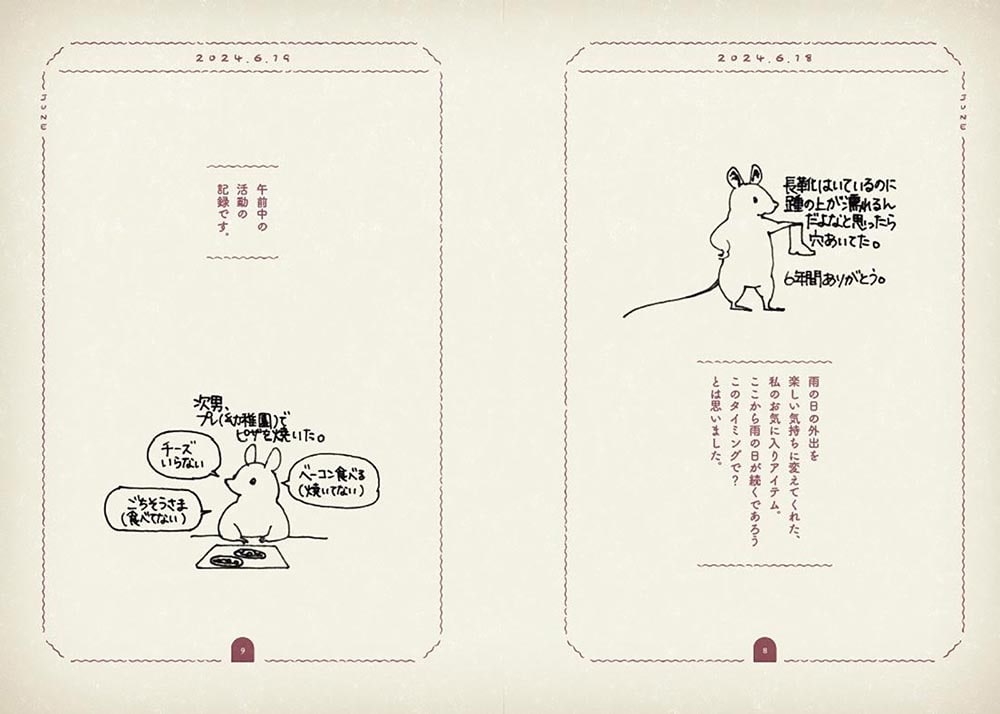 2024.6.18
JUNE
長靴はいているのに
踵の上が濡れるん
だよなと思ったら
穴あいてた。
6年間ありがとう。
雨の日の外出を
楽しい気持ちに変えてくれた、
私のお気に入りアイテム。
ここから雨の日が続くであろう
このタイミングで?
とは思いました。
8
2024.6.19
JUNE
午前中の
活動の
記録です。
次男、
プレ(幼稚園)で
ピザを焼いた。
チーズ
いらない
ベーコン食べる
(焼いてない)
ごちそうさま
(食べてない)
9